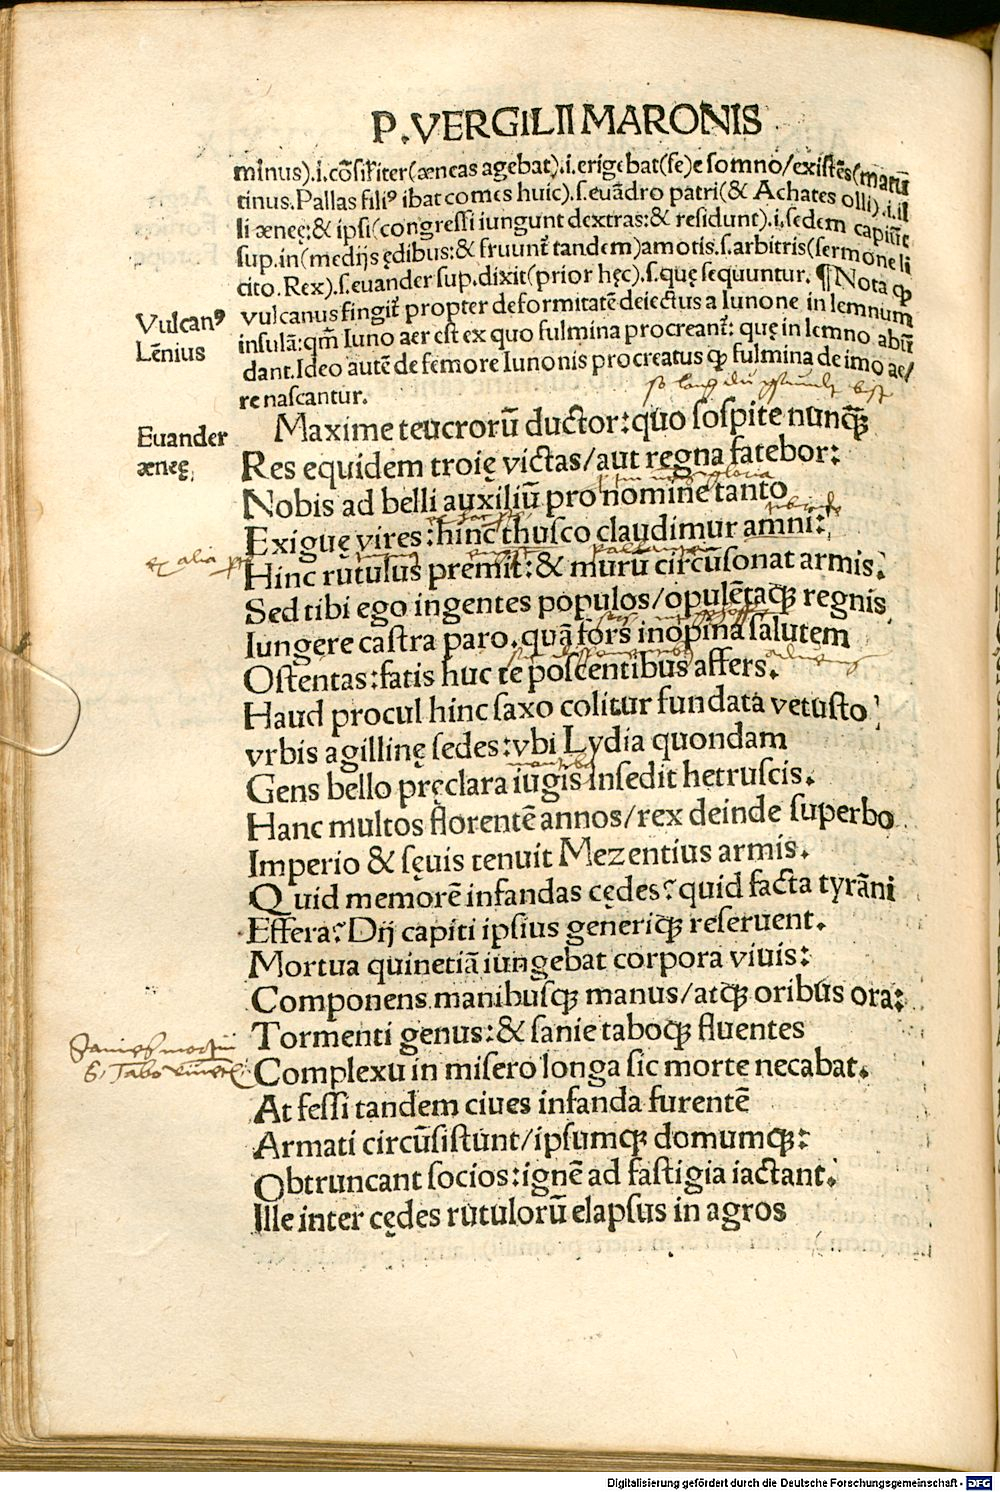 P.VERGILII MARONIS
minus).i.cõsiliter(æneas agebat).i.erigebat(se)e somno/existẽs(matu
tinus.Pallas filiꝰ ibat comes huic).s.euãdro patri(& Achates olli).i.il
li æneę:& ipsi(congressi iungunt dextras:& residunt).i.sedem capiũt
sup.in(medijs ędibus:& fruunt tandem)amotis.s.arbitris(sermone li
cito.Rex).s.euander sup.dixit(prior hęc).s.quę sequuntur.¶Nota ꝙ
Vulcanꝰ
vulcanus fingit propter deformitatẽ deiectus a Iunone in lemnum
Lẽnius
insulã:qm̃ Iuno aer est ex quo fulmina procreant: quę in lemno abũ
dant.Ideo autẽ de femore Iunonis procreatus ꝙ fulmina de imo ae/
re nascantur.
Euander
Maxime teucrorũ ductor:quo sospite nunꝗ̃
æneę,
Res equidem troię victas/aut regna fatebor:
Nobis ad belli auxiliũ pro nomine tanto
Exiguę vires:hinc thusco claudimur amni:
ex alia pte
Hinc rutulus premit:& murũ circũsonat armis.
Sed tibi ego ingentes populos/opulẽtaꝗ regnis
Iungere castra paro.quã fors inopina salutem
Ostentas:fatis huc te poscentibus affers.
Haud procul hinc saxo colitur fundata vetusto
vrbis agillinę sedes:vbi Lydia quondam
montibꝰ
Gens bello pręclara iugis insedit hetruscis.
Hanc multos florentẽ annos/rex deinde superbo
Imperio & sęuis tenuit Mezentius armis.
Quid memorẽ infandas cędes?quid facta tyrãni
Effera?Dij capiti ipsius generiꝗ reseruent.
Mortua quinetiã iungebat corpora viuis:
Componens manibusꝗ manus/atꝗ oribus ora:
Tormenti genus:& sanie taboꝗ fluentes
Complexu in misero longa sic morte necabat.
At fessi tandem ciues infanda furentẽ
Armati circũsistunt/ipsumꝗ domumꝗ:
Obtruncant socios:ignẽ ad fastigia iactant.
Ille inter cędes rutulorũ elapsus in agros
Digitalisierung gefördert durch die Deutsche Forschungsgemeinschaft - DFG